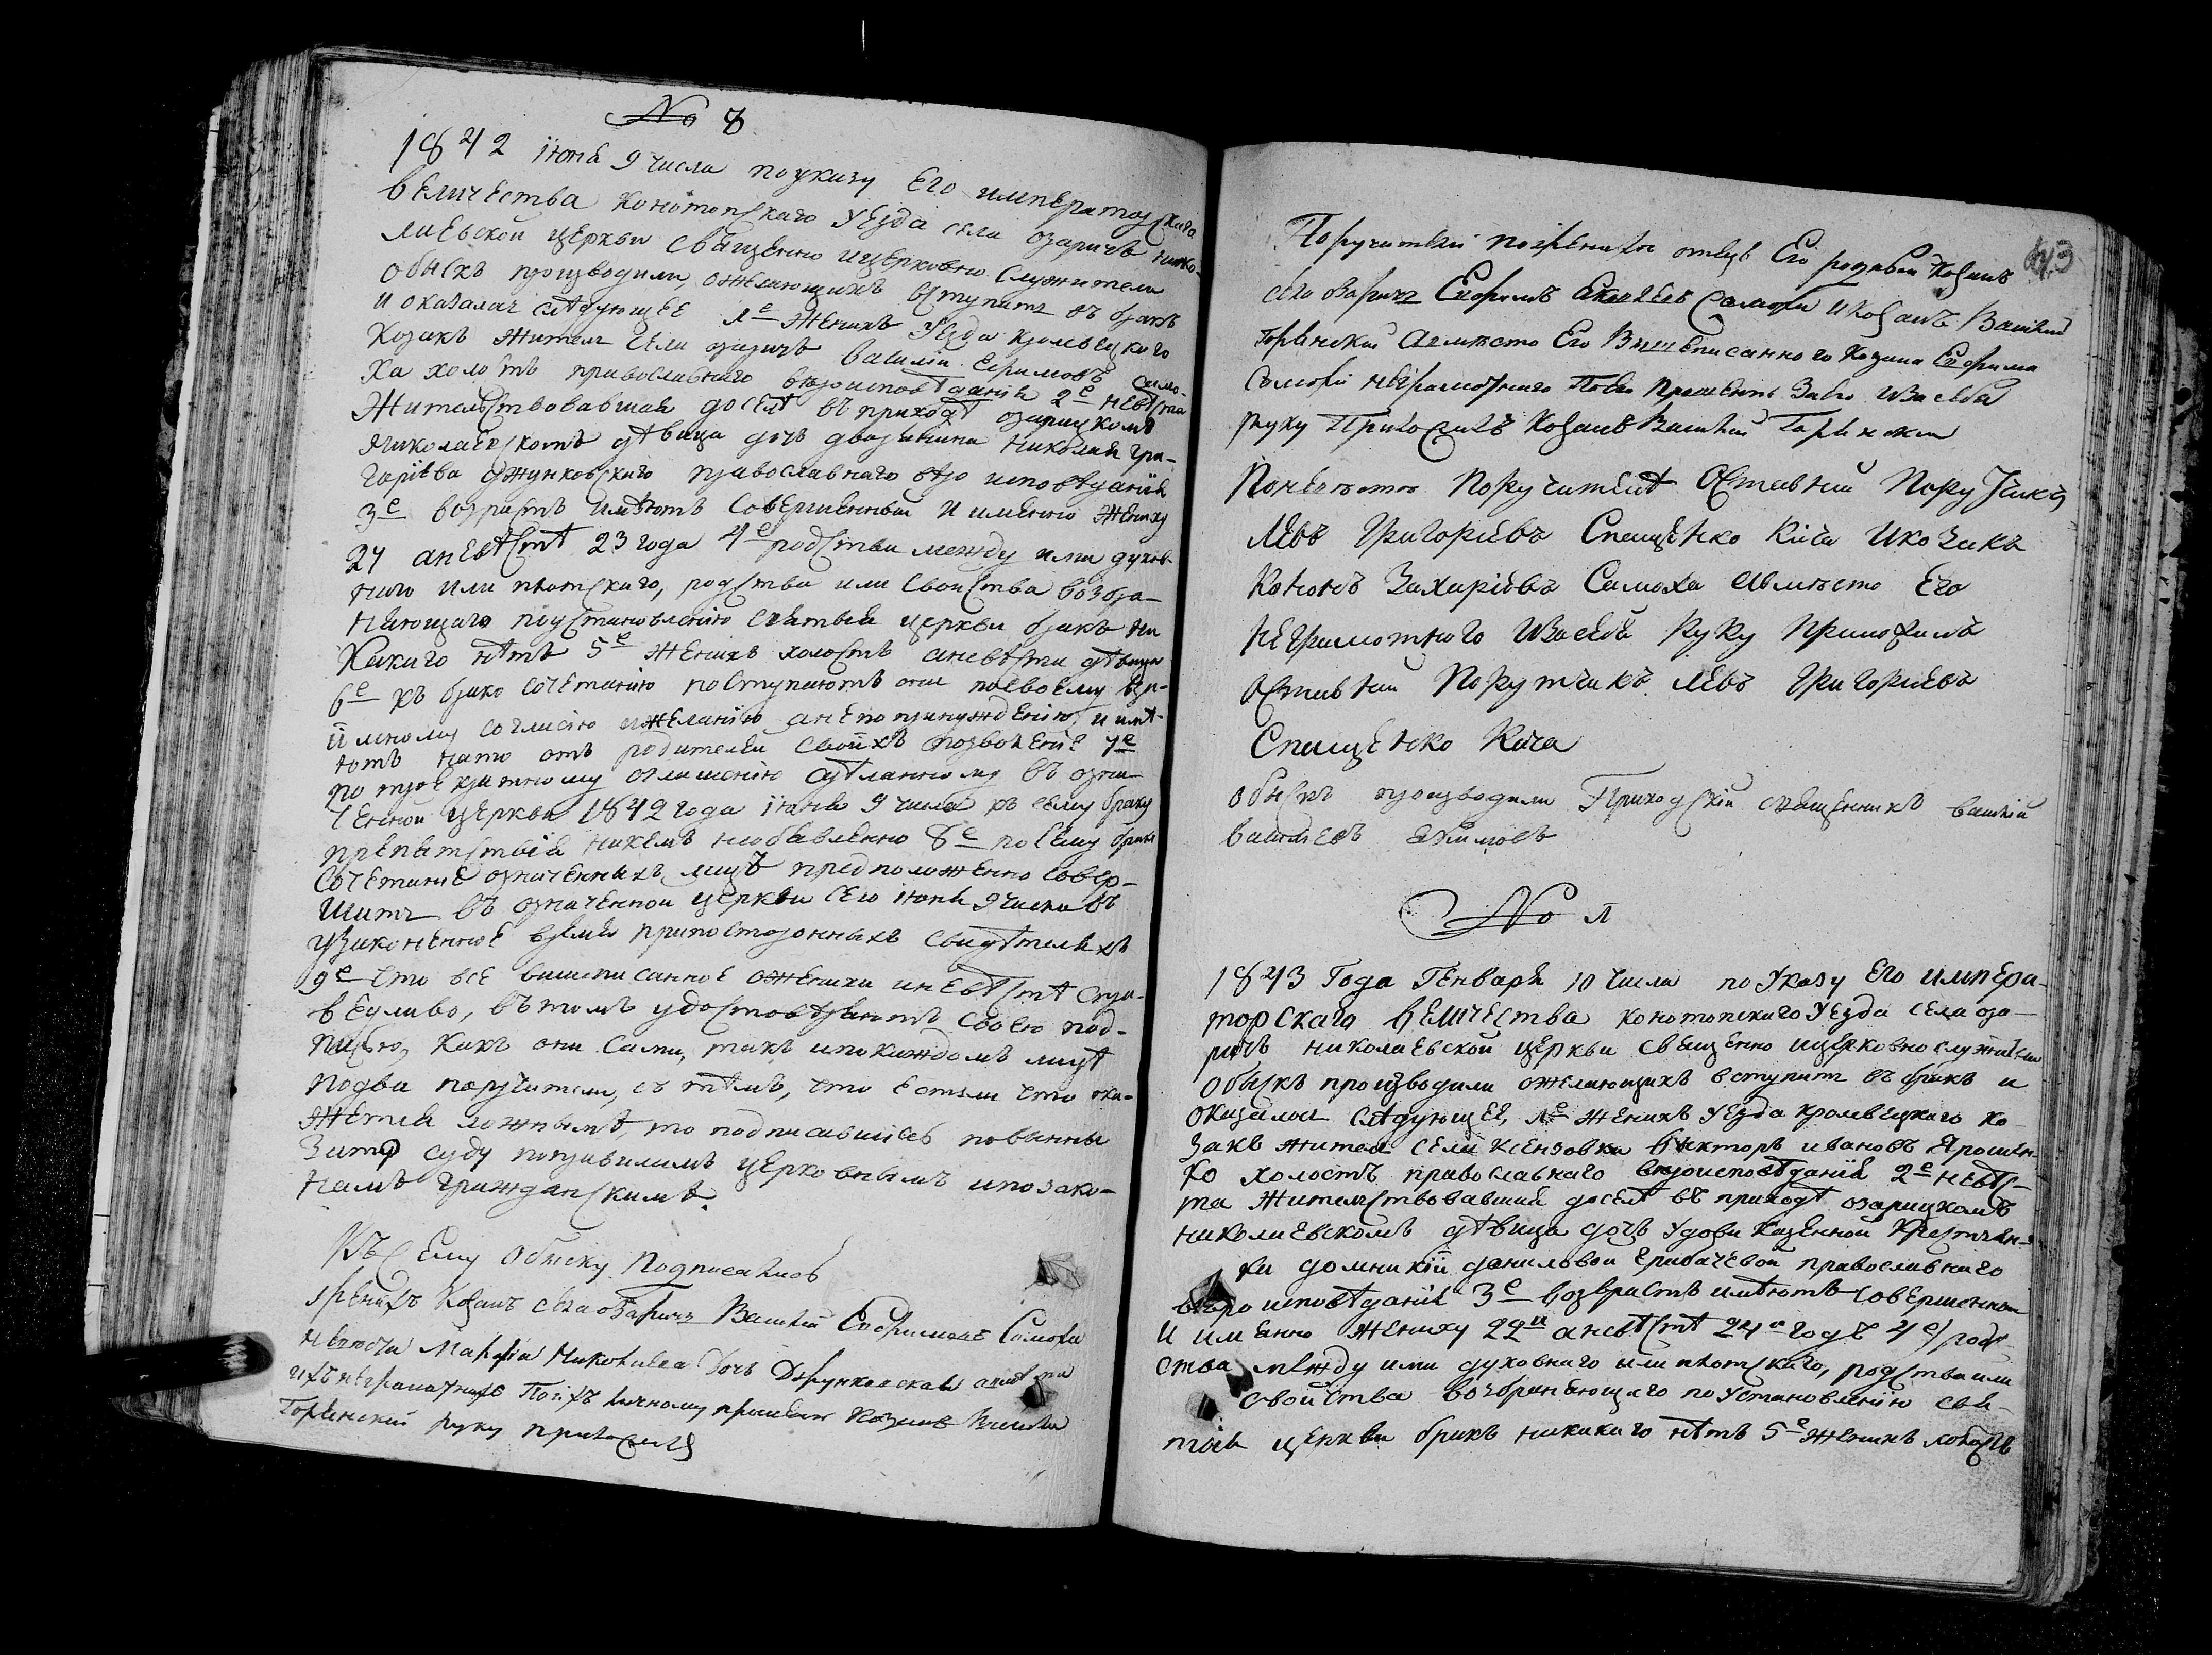 № 8
1842 іюня 9 числа поуказу Его императорскаго
величества конотопскаго уезда села озаричъ нико-
лаевской церкви священно ицерковно служители
обыскъ производили, ожелающихъ вступить въ бракъ
и оказалось слѣдующее 1е женихъ уезда кролевецкаго
козакъ житель села озаричъ василій ефимовъ само-
ха холостъ православнаго вѣроисповѣданія 2е невѣста
жительствовавшая доселѣ въ приходѣ озарицкомъ
николаевскомъ дѣвица дочь дворянина николая гри-
горіева джунковскаго православнаго вѣро исповѣданія
3е возрастъ имѣютъ совершенный и именно жениху
24 аневѣстѣ 23 года 4е родства между ими духов-
наго или плотскаго, родства или свойства возбра-
няющаго поустановленію святыя церкви бракъ ни
какаго нѣтъ 5е женихъ холостъ аневѣста дѣвица
6е къ брако сочетанію поступаютъ они посвоему вза-
имному согласію ижеланію анепопринужденію, и имѣ-
ютъ нато отъ родителей своихъ позволеніе 7е
по троекратному оглашенію сдѣланному въ озна-
ченной церкви 1842 года іюня 9 числа къ сему браку
препятствія никемъ необъявленно 8е посему брако
сочетаніе означенныхъ лицъ предположенно совер-
шить въ означенной церкви сего іюня 9 числа въ
узаконенное время припостороннихъ свидѣтеляхъ
9е что все вышеписанное оженихи иневѣстѣ спра-
ведливо, въ томъ удостовѣряютъ своею под-
писью, какъ они сами, такъ ипокаждомъ лицѣ
подва поручители, съ тѣмъ, что естьли что ока-
жется ложнымъ, то подписавшіесь повинны
затo суду поправиламъ церковнымъ ипозако-
намъ гражданскимъ.
Къ сему обыску подписались
женихъ козакъ села озаричъ Василій Ефимовъ Самоха
невѣста Марфа Николаева дочь Джунковская аза
ихъ неграмотныхъ Поихъ личному прошенію козакъ Василій
Горбинскій руку приложилъ
43
Поручители пожениху отецъ Его родный козакъ
села озаричъ Ефимъ Самоха и козакъ Василій
Горбинскій авместо Его Вышеписанного козака Ефима
Самохи неграмотнаго Поего Прошенію Заего изасебя
руку Приложилъ козакъ Василій Горбинскій
Поневѣсте поручители Отставній Поручикъ
Левъ Григоріевъ Спащенко Кича Икозакъ
Кононъ Захаріевъ Самоха авместо Его
неграмотного изасебя руку приложилъ
отставній порутчикъ левъ григоріевъ
Спащенко Кича
обыскъ производили Приходскій священникъ василій
василіевъ
№ 1
1843 года генваря 10 числа по указу Его импера-
торскаго величества конотопскаго уезда села оза-
ричъ николаевской церкви священно ицерковно служители
обыскъ производили ожелающихъ вступить въ бракъ и
оказалось слѣдующее, 1е женихъ уезда кролевецкаго ко-
закъ житель села ксензовки викторъ ивановъ ярошен-
ко холостъ православнаго вѣроисповѣданія 2е невѣс-
та жительствовавшая доселѣ въ приходѣ озарицкомъ
николаевскомъ дѣвица дочь удови казенной крестьян-
ки домникіи даниловой грибачевой православнаго
вѣро исповѣданія 3е возврастъ имѣютъ совершенный
и именно жениху 22и аневѣстѣ 24и годъ 4е родс-
ства между ими духовнаго или плотскаго, родства или
свойства возбраняющаго поустановленію свя-
тыя церкви бракъ никакаго нѣтъ 5е женихъ холостъ